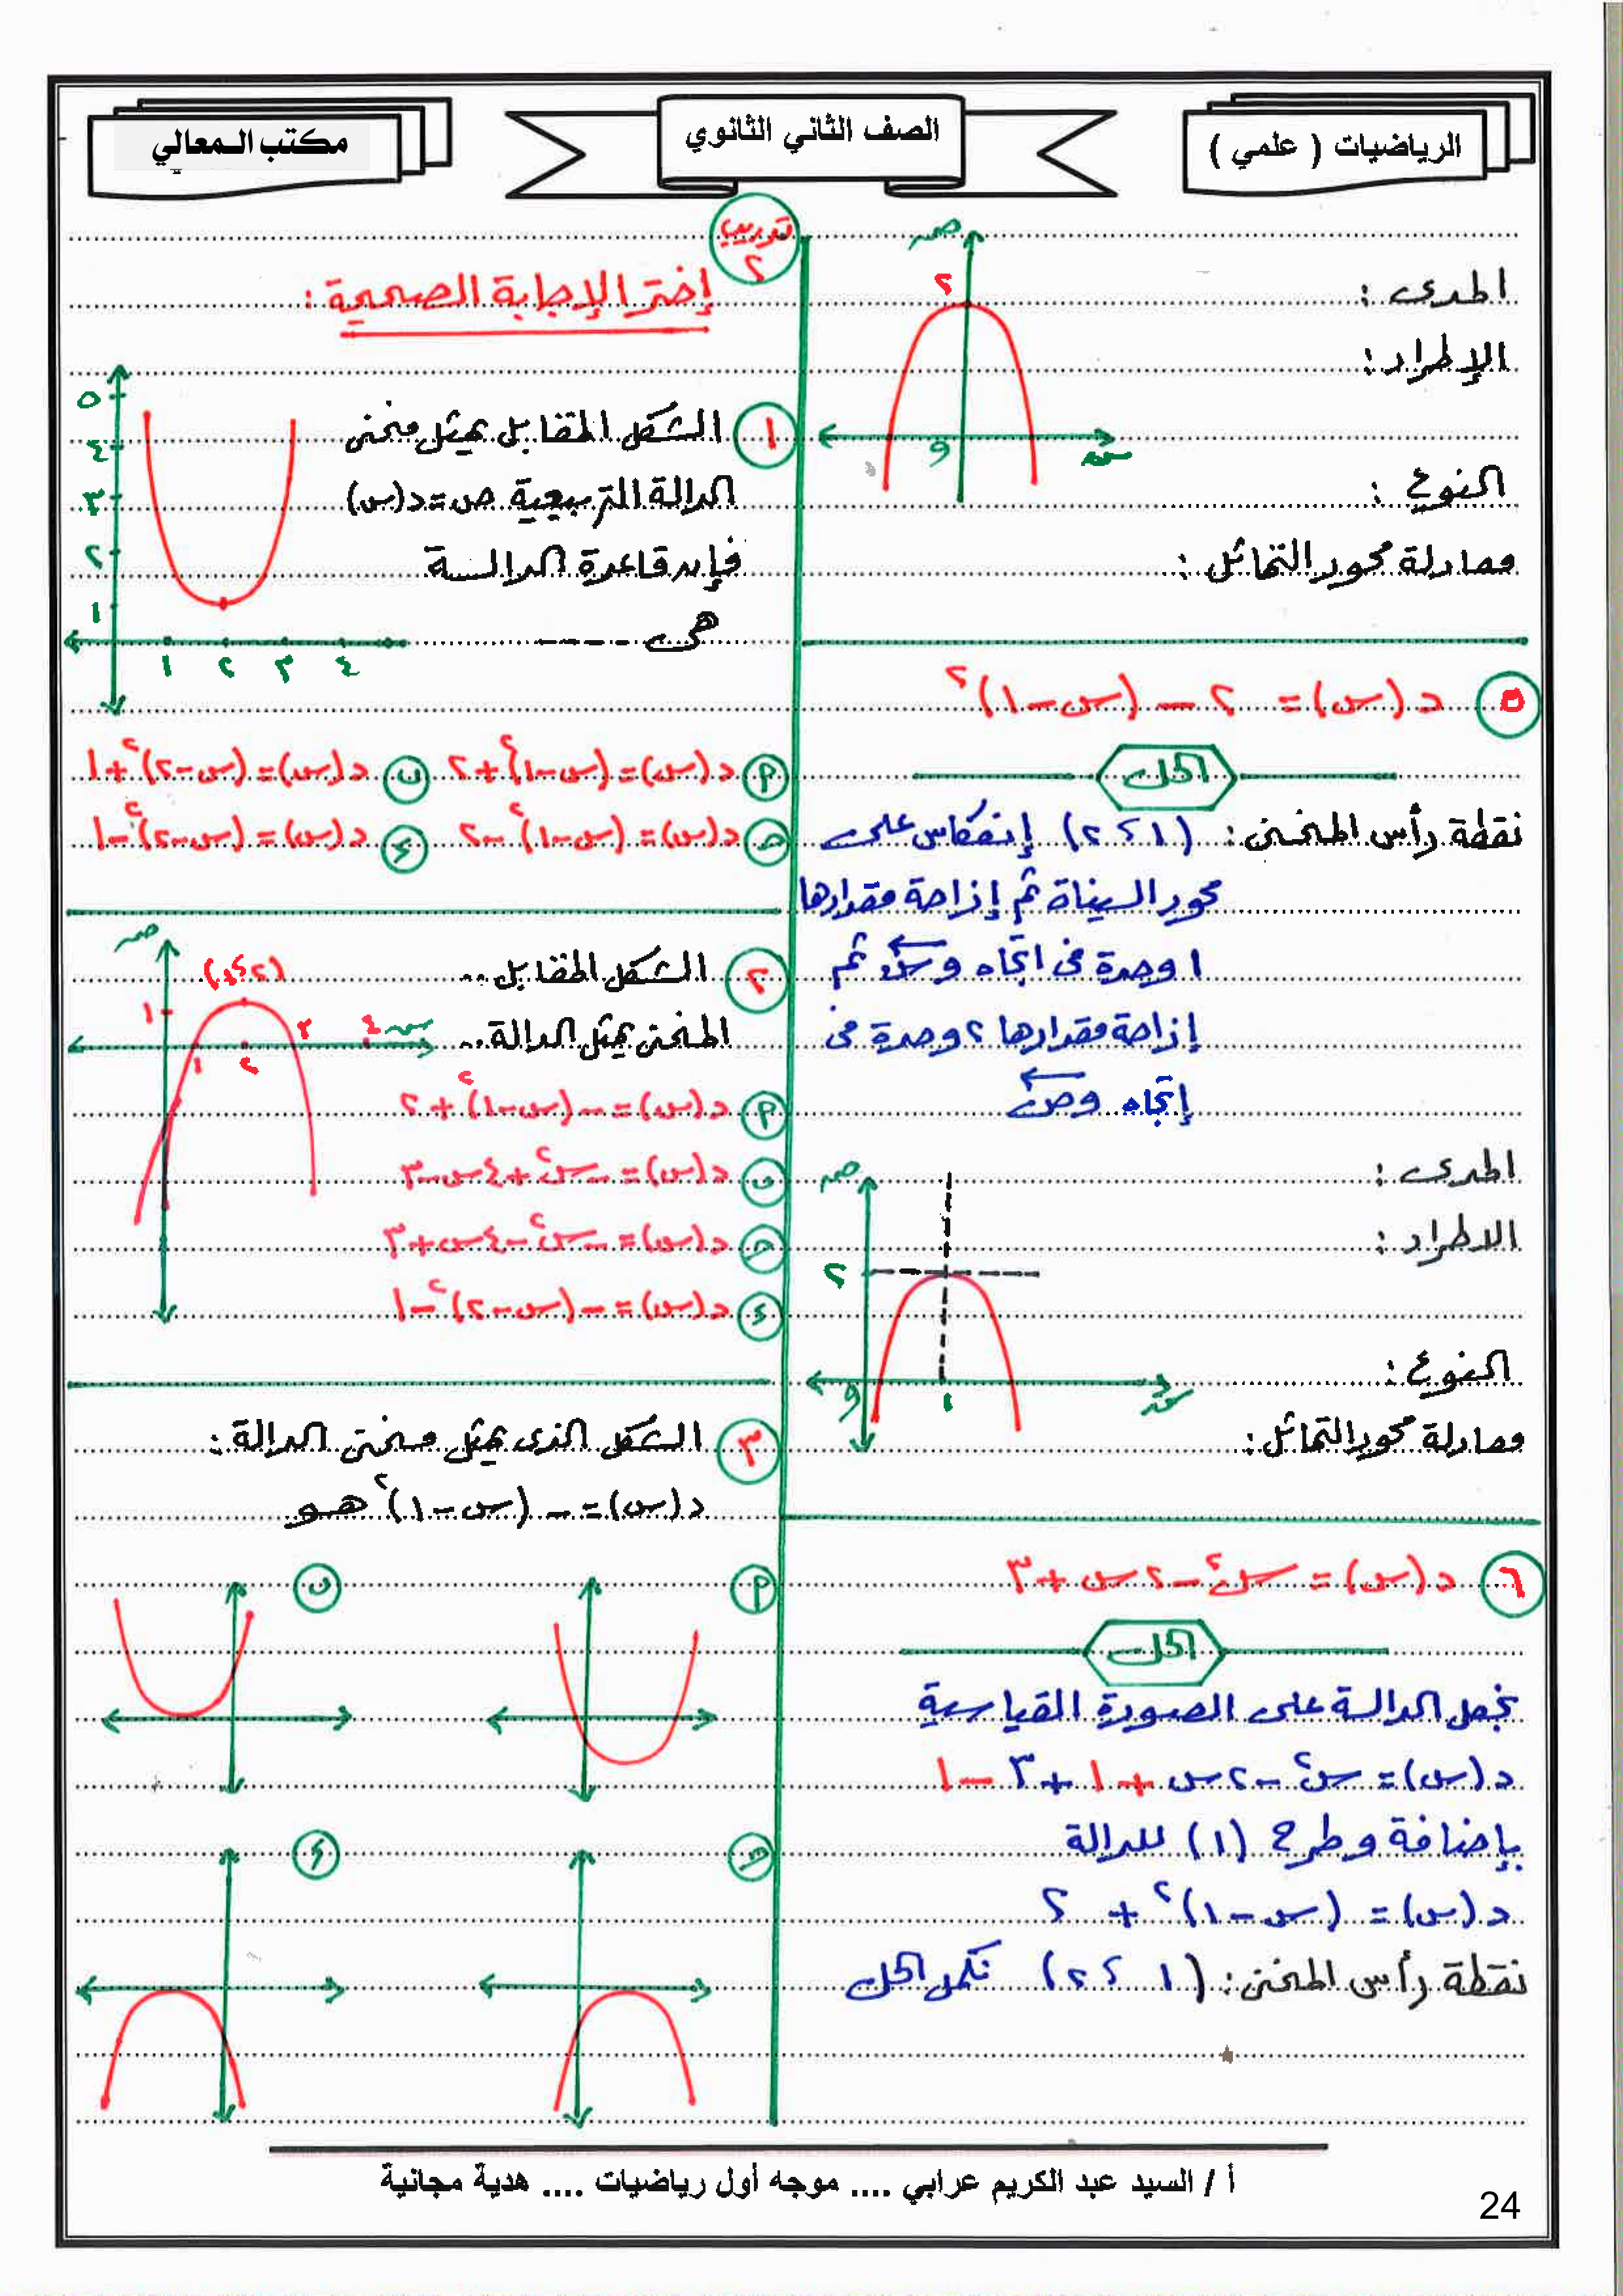 الرياضيات ( علمي )
الصف الثاني الثانوي
مكتب المعالي
صـ
٢
المدى :
الإطراد :
و
سـ
النوع :
معادلة محور التماثل :
٥ د(س) = ٢ - (س-١)٢
الحل
نقطة رأس المنحنى : (١ ، ٢) إنعكاس على
محور السينات ثم إزاحة مقدارها
١ وحدة فى اتجاه وس ثم
إزاحة مقدارها ٢ وحدة فى
إتجاه وص
المدى :
صـ
الاطراد :
٢
النوع :
و
١
سـ
معادلة محور التماثل :
٦ د(س) = س٢ - ٢س + ٣
الحل
نجعل الدالة على الصورة القياسية
د(س) = س٢ - ٢س + ١ + ٣ - ١
بإضافة وطرح (١) للدالة
د(س) = (س-١)٢ + ٢
نقطة رأس المنحنى : (١ ، ٢) نكمل الحل
تدريب ٢
إختر الإجابة الصحيحة :
١ الشكل المقابل يمثل منحنى
الدالة التربيعية ص = د(س)
فإن قاعدة الدالة
هى ----
٥
٤
٣
٢
١
١ ٢ ٣ ٤
أ د(س) = (س-١)٢ + ٢ ب د(س) = (س-٢)٢ + ١
ج د(س) = (س-١)٢ - ٢ د د(س) = (س-٢)٢ - ١
٢ الشكل المقابل ..
المنحنى يمثل الدالة ..
صـ
(٢ ، ١)
١
١ ٢ ٣ ٤ سـ
أ د(س) = - (س-١)٢ + ٢
ب د(س) = - س٢ + ٤س - ٣
ج د(س) = - س٢ - ٤س + ٣
د د(س) = - (س-٢)٢ - ١
٣ الشكل الذى يمثل منحنى الدالة :
د(س) = - (س-١)٢ هو
أ ب
ج د
أ / السيد عبد الكريم عرابي .... موجه أول رياضيات .... هدية مجانية
24